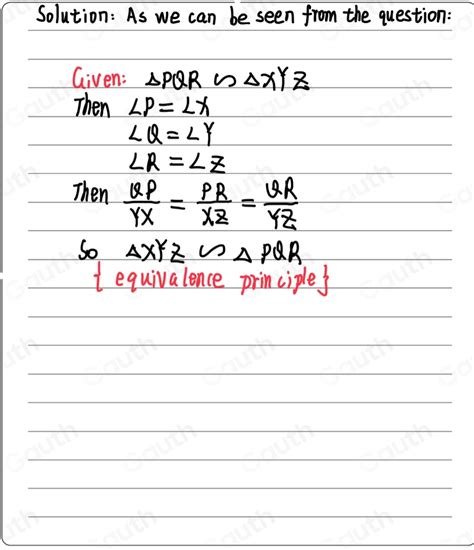 Solution: As we can be seen from the question:
Given: △PQR ∽ △XYZ
Then ∠P = ∠X
∠Q = ∠Y
∠R = ∠Z
Then QP/YX = PR/XZ = QR/YZ
So △XYZ ∽ △PQR
{ equivalence principle}